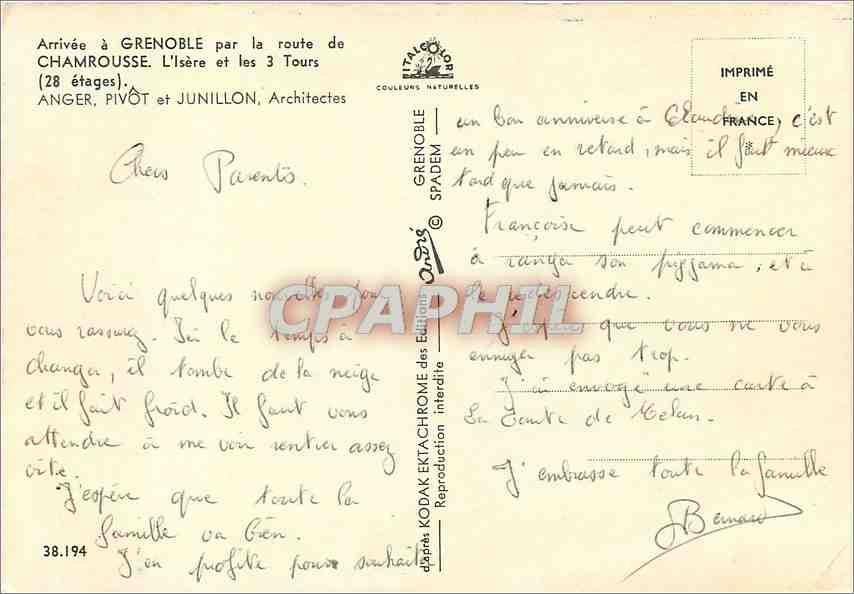 Arrivée à GRENOBLE par la route de
CHAMROUSSE. L'Isère et les 3 Tours
(28 étages).
ANGER, PIVÔT et JUNILLON, Architectes
Chers Parents.
Voici quelques nouvelles pour
vous rassurez. Ici le temps à
changer, il tombe de la neige
et il fait froid. Il faut vous
attendre à me voir rentrer assez
vite.
J'espère que toute la
famille va bien.
J'en profite pour souhaiter
38.194
ITALCOLOR
COULEURS NATURELLES
d'après KODAK EKTACHROME des Editions André © GRENOBLE
Reproduction interdite SPADEM
IMPRIMÉ
EN
FRANCE
un bon anniverse à Claudine, c'est
un peu en retard, mais il faut mieux
tard que jamais.
Françoise peut commencer
à ranger son pyjama, et à
le redescendre.
J'espère que vous ne vous
ennuyer pas trop.
J'ai envoyé une carte à
La Tante de Melun.
J'embrasse toute la famille
Bernard
CPAPHIL